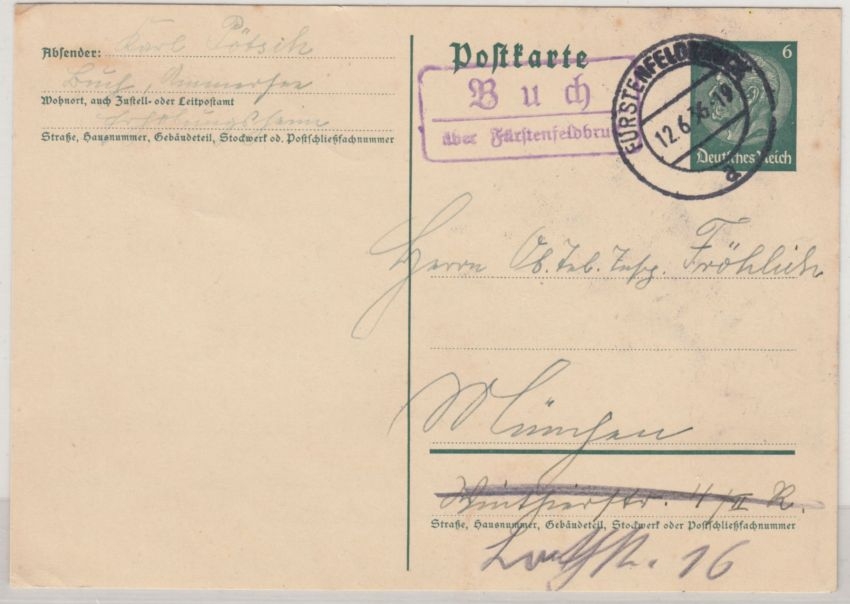 Absender: Karl Pötsch
Buch, Ammersee
Wohnort, auch Zustell- oder Leitpostamt
Erholungsheim
Straße, Hausnummer, Gebäudeteil, Stockwerk od. Postschließfachnummer
Postkarte
6
Buch
über Fürstenfeldbru
FÜRSTENFELDBRUCK
12.6.36.-19
a
Deutsches Reich
Herrn Ob. Tel. Insp. Fröhlich
München
Winthirstr. 4/II R.
Straße, Hausnummer, Gebäudeteil, Stockwerk oder Postschließfachnummer
Lothstr. 16